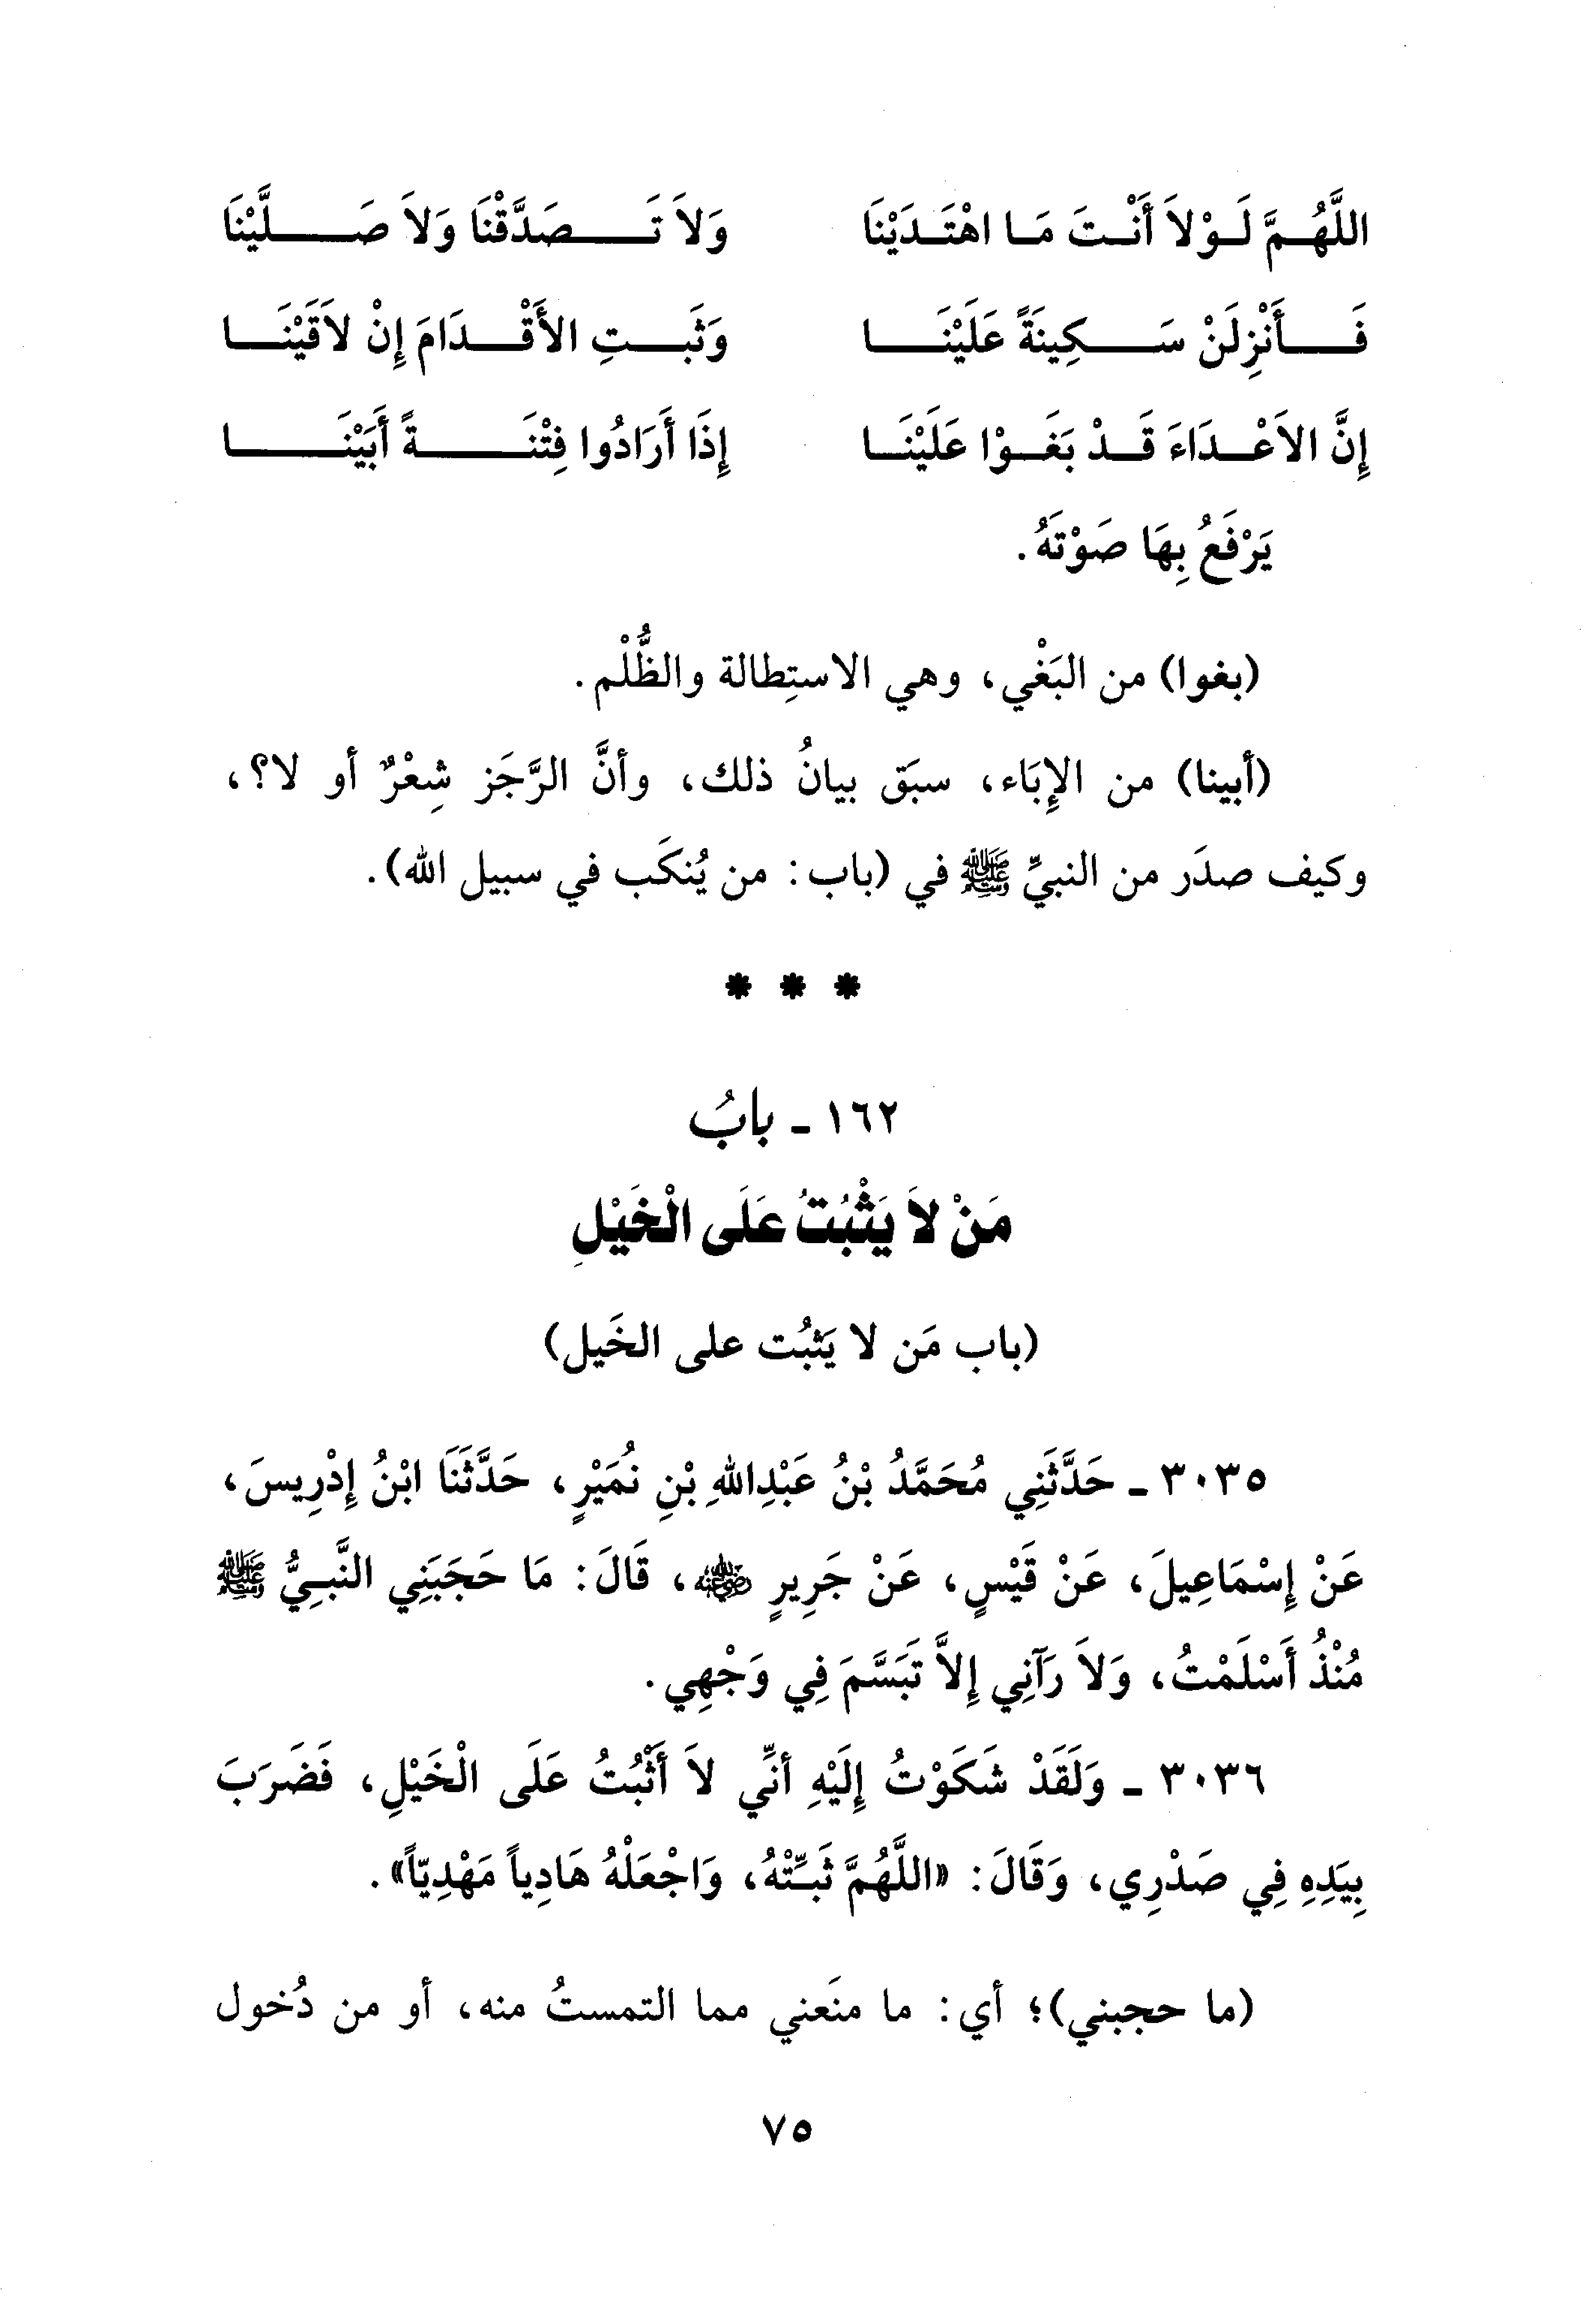 اللَّهُمَّ لَوْلاَ أَنْتَ مَا اهْتَدَيْنَا وَلاَ تَصَدَّقْنَا وَلاَ صَلَّيْنَا
فَأَنْزِلَنْ سَكِينَةً عَلَيْنَا وَثَبتِ الأَقْدَامَ إِنْ لاَقَيْنَا
إِنَّ الاَعْدَاءَ قَدْ بَغَوْا عَلَيْنَا إِذَا أَرَادُوا فِتْنَةً أَبَيْنَا
يَرْفَعُ بِهَا صَوْتَهُ.
(بغوا) من البَغْي، وهي الاستِطالة والظُّلْم.
(أبينا) من الإِبَاء، سبَق بيانُ ذلك، وأنَّ الرَّجَز شِعْرٌ أو لا؟،
وكيف صدَر من النبيِّ ﷺ في (باب: من يُنكَب في سبيل الله).
* * *
١٦٢ - بابُ
مَنْ لاَ يَثْبُتُ عَلَى الْخَيْلِ
(باب مَن لا يَثبُت على الخَيل)
٣٠٣٥ - حَدَّثَنِي مُحَمَّدُ بْنُ عَبْدِاللهِ بْنِ نُمَيْرٍ، حَدَّثَنَا ابْنُ إِدْرِيسَ،
عَنْ إِسْمَاعِيلَ، عَنْ قَيْسٍ، عَنْ جَرِيرٍ رضي الله عنه، قَالَ: مَا حَجَبَنِي النَّبِيُّ ﷺ
مُنْذُ أَسْلَمْتُ، وَلاَ رَآنِي إِلاَّ تَبَسَّمَ فِي وَجْهِي.
٣٠٣٦ - وَلَقَدْ شَكَوْتُ إِلَيْهِ أَنِّي لاَ أَثْبُتُ عَلَى الْخَيْلِ، فَضَرَبَ
بِيَدِهِ فِي صَدْرِي، وَقَالَ: «اللَّهُمَّ ثَبِّتْهُ، وَاجْعَلْهُ هَادِياً مَهْدِيّاً».
(ما حجبني)؛ أي: ما منَعني مما التمستُ منه، أو من دُخول
٧٥